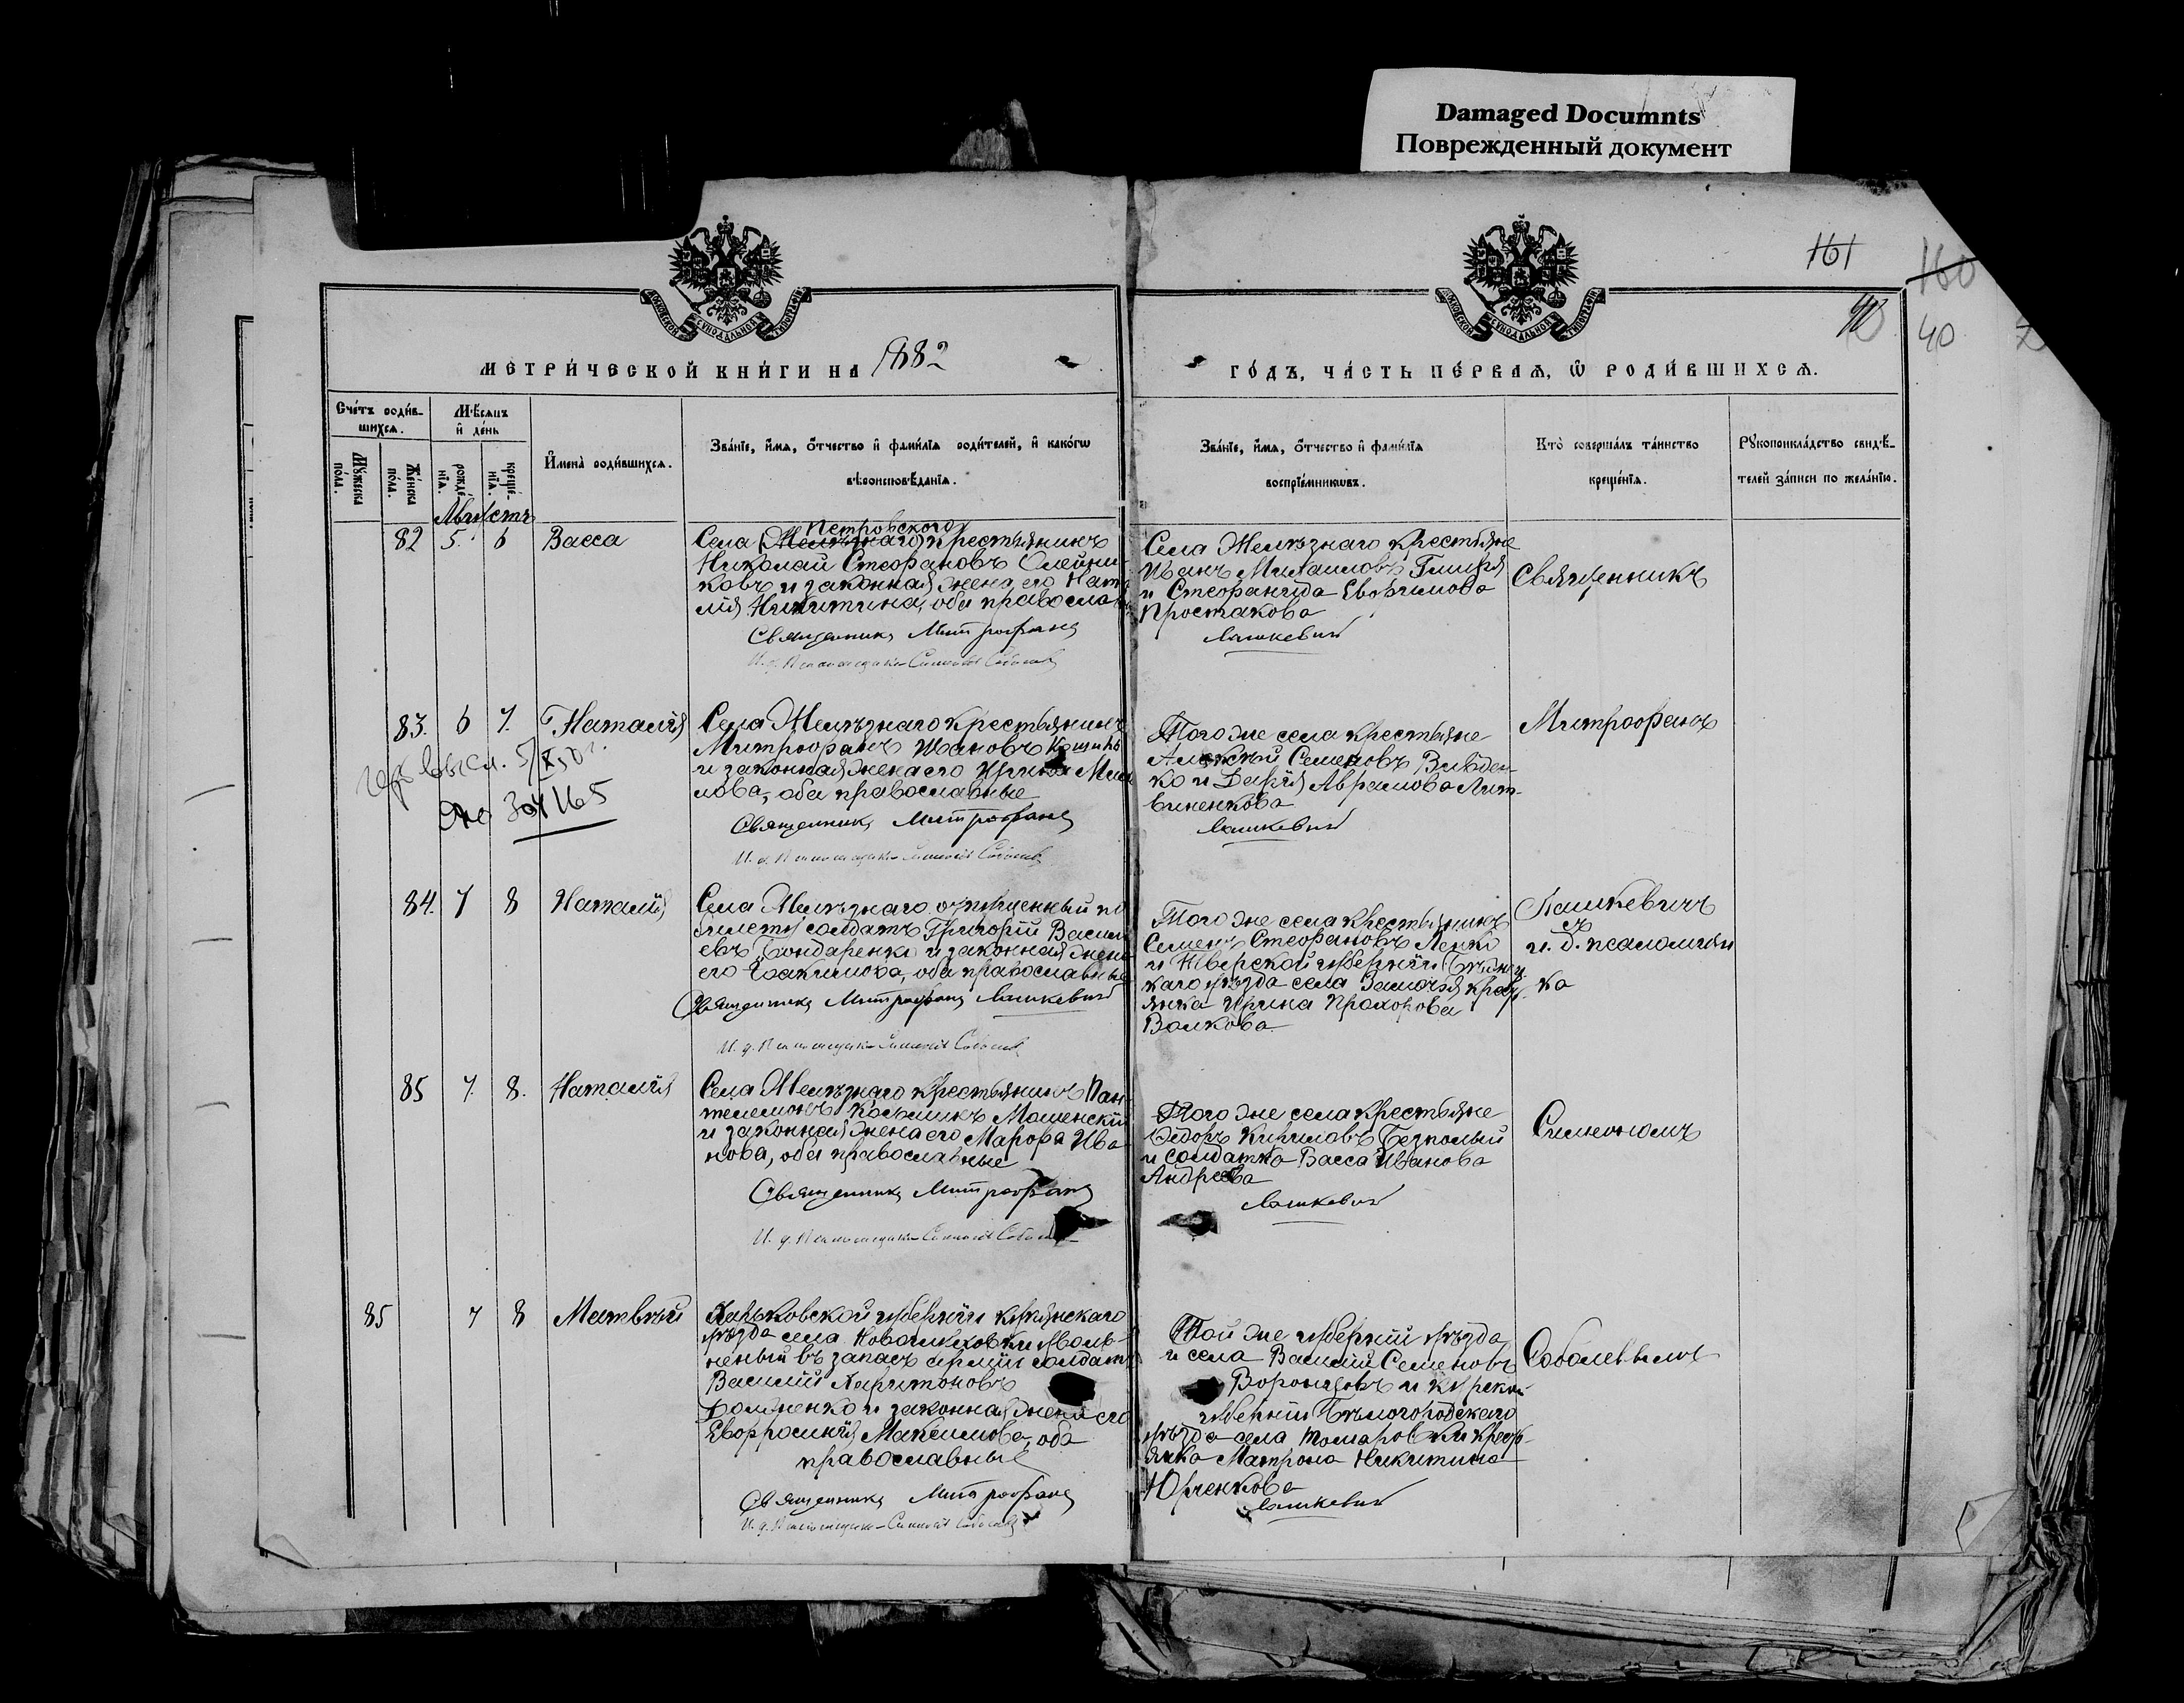 Damaged Documnts
Поврежденный документ
161
160
40
МОСКОВСКОЙ СѴНОДАЛЬНОЙ ТИПОГРАФІИ
МОСКОВСКОЙ СѴНОДАЛЬНОЙ ТИПОГРАФІИ
МЕТРИ́ЧЕСКОЙ КНИ́ГИ НА 1882
ГО́ДЪ, ЧА́СТЬ ПЕ́РВАѦ, Ѡ РОДИ́ВШИХСѦ.
Сче́тъ роди́в-
шихсѧ.
Мѣ́сѧцъ
и҆ де́нь
Мꙋ́жеска
по́ла.
Же́нска
по́ла.
рожде́-
нїѧ.
креще́-
нїѧ.
И҆мена̀ роди́вшихсѧ.
Зва́нїе, и҆́мѧ, ѻ҆́тчество и҆ фами́лїѧ роди́телей, и҆ како́гѡ
вѣроисповѣ́данїѧ.
Зва́нїе, и҆́мѧ, ѻ҆́тчество и҆ фами́лїѧ
воспрїе́мникѡвъ.
Кто̀ соверша́лъ та́инство
креще́нїѧ.
Рꙋкоприкла́дство свидѣ́-
телей за́писи по жела́нїю.
Августъ
82 5. 6 Васса
Петровского
Села (Желѣзнаго) крестьянинъ
Николай Стефановъ Олейни-
ковъ и законная жена его Ната
лія Никитина, оба православ
Священникъ Митрофанъ
И. д. Псаломщика Симеонъ Соболев
Села Желѣзнаго крестьяне
Иванъ Михаиловъ
и Стефанида Евфимова
Простакова
Лашкевичъ
Священникъ
83. 6 7. Наталія
Села Желѣзнаго крестьянинъ
Митрофанъ Ивановъ
и законная жена его Ирина
лова, оба православные
Священникъ Митрофанъ
И. д. Псаломщика Симеонъ Соболев
Того же села крестьяне
Алексѣй Семеновъ
ко и Дарія Аврамова Лит-
виненкова
Лашкевичъ
Митрофанъ
304165
84. 7 8 Наталія
Села Желѣзнаго отпущенный по
билету солдатъ Григорій Васил
евъ Бондаренко и законная жена
его Іоакимова, оба православные
Священникъ Митрофанъ Лашкевичъ
И. д. Псаломщика Симеонъ Соболев
Того же села крестьянинъ
Семенъ Стефановъ Ленко
и Тверской губерніи Бѣжец-
каго уѣзда села крест-
янка Ирина Прохорова
Волкова
Лашкевичъ
съ
и. д. псаломщи
ка
85 7. 8. Наталія
Села Желѣзнаго крестьянинъ Пан-
телемонъ Косминъ Машенскій
и законная жена его Марфа Ива
нова, оба православные
Священникъ Митрофанъ
И. д. Псаломщика Симеонъ Собол
Того же села крестьяне
Ѳедоръ Кириловъ Безполый
и солдатка Васса Иванова
Андреева
Лашкевичъ
Симеономъ
85 7 8 Матвѣй
Харьковской губерніи Купянскаго
уѣзда села уволь-
неный въ запасъ арміи солдатъ
Василій Харитоновъ
и законная жена его
Евфросинія Максимова, оба
православные
Священникъ Митрофанъ
И. д. Псаломщика Симеонъ Соболев
Той же губерніи уѣзда
и села Василій Семеновъ
Воронцовъ и Курской
губерніи Бѣлогородскаго
уѣзда села Томаровки крест-
янка Матрона Никитина
Юрченкова
Лашкевичъ
Соболевымъ